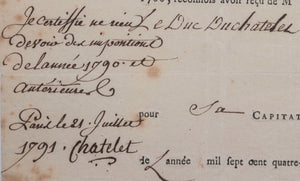 reconnois avoir reçu de M
Je certiffie ne rien Le Duc Duchatelet
devoir des impositions
de l'année 1790. et
antérieures
pour Sa CAPITAT
Paris le 21. Juillet
1791. Chatelet
de L année mil sept cent quatre-